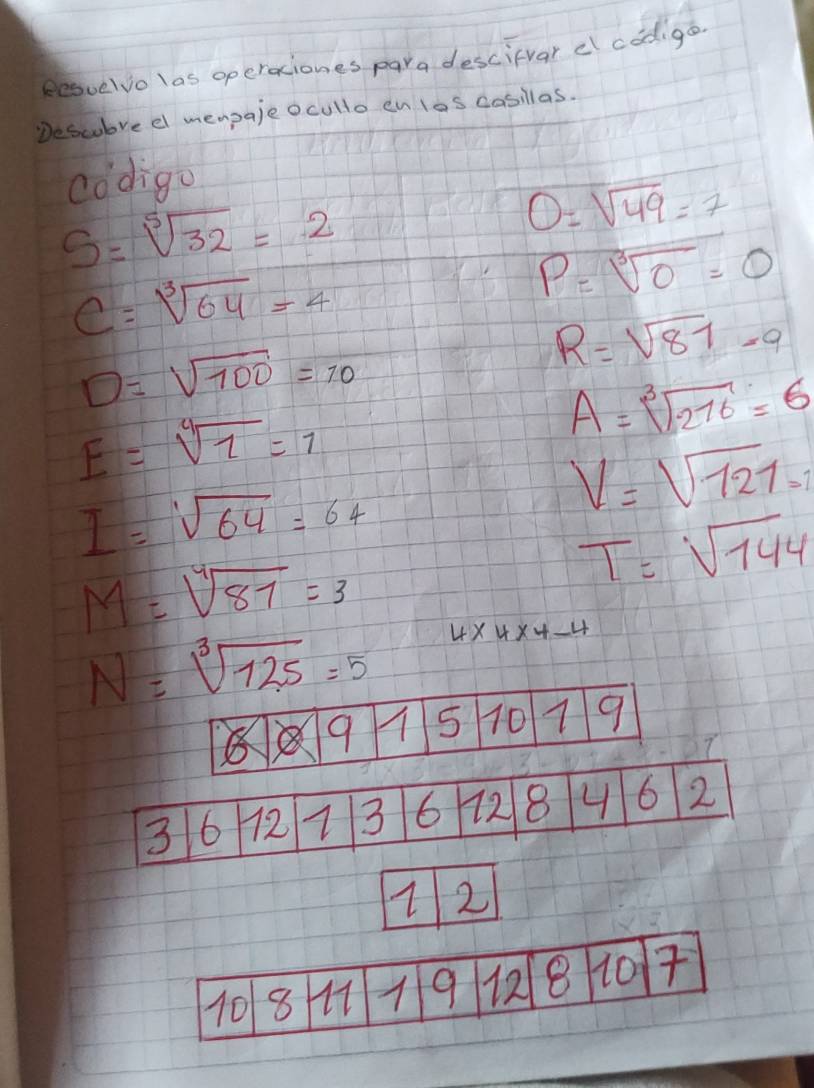 Resuelvo las operaciones para descifrar el código.
Descubre el mensaje oculto en las casillas.
Código
S = ⁵√32 = 2
O = √49 = 7
C = ³√64 = 4
P = ³√0 = 0
D = √100 = 10
R = √81 = 9
E = ⁴√1 = 1
A = ³√216 = 6
I = √64 = 64
V = √121 =
M = ⁴√81 = 3
T = √144
N = ³√125 = 5
4x4x4-4
6 0 9 1 5 10 1 9
3 6 12 1 3 6 12 8 4 6 2
1 2
10 8 11 1 9 12 8 10 7